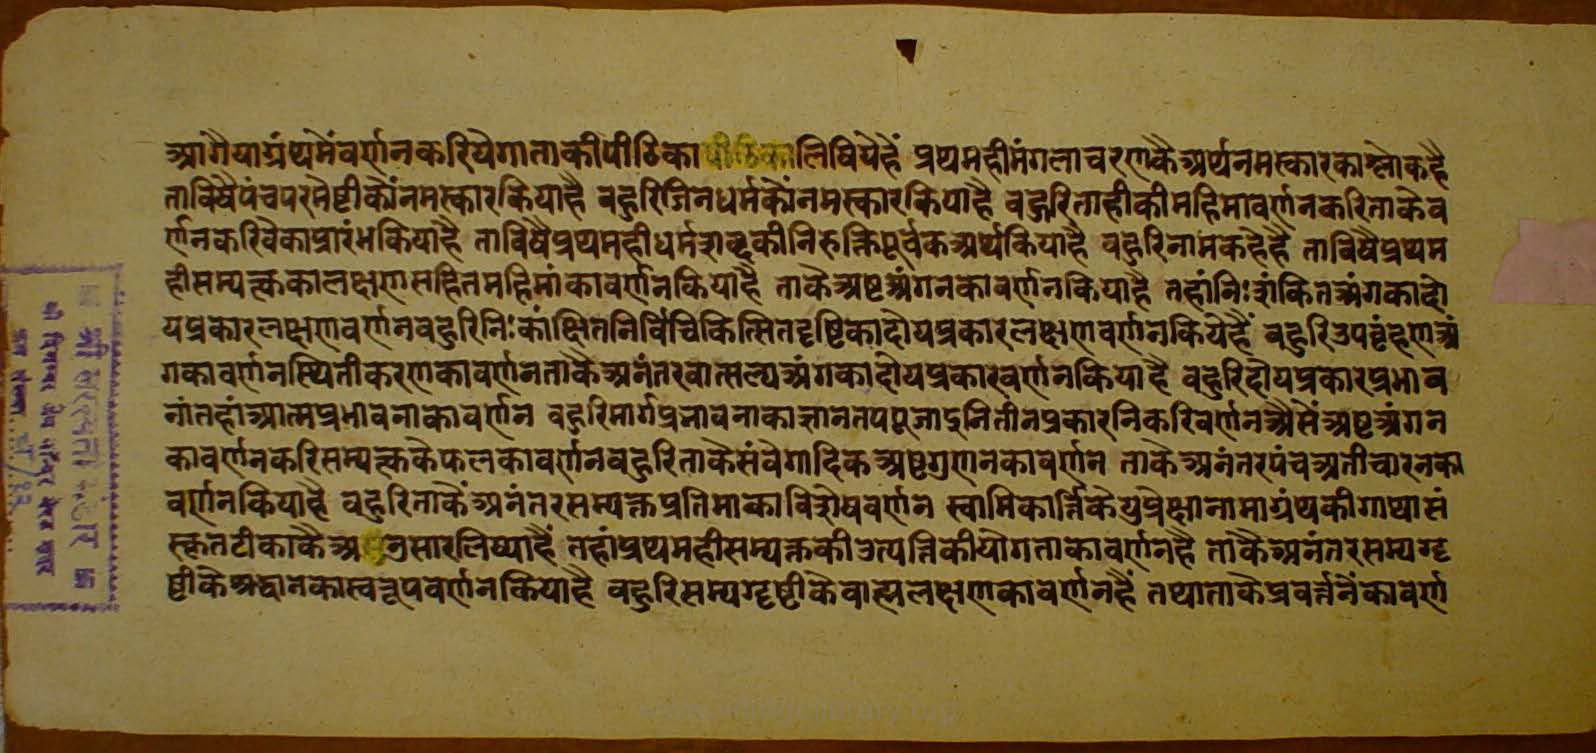 आगैयाग्रंथमैंवर्णनकरियेगाताकीपीठिका लिषियेहैं प्रथमहीमंगलाचरणकैअर्थनमस्कारकाश्लोकहै
ताविषैपंचपरमेष्टीकौंनमस्कारकियाहै बहुरिजिनधर्मकौंनमस्कारकियाहै बहुरिताहीकीमहिमावर्णनकरिताकेव
र्णनकरिवेकाप्रारंभकियाहै ताविषैप्रथमहीधर्मशब्दकीनिरुक्तिपूर्वकअर्थकियाहै बहुरिनामकहेहै ताविषैप्रथम
हीसम्यक्त्वकालक्षणसहितमहिमांकावर्णनकियाहै ताकैअष्टअंगनकावर्णनकियाहै तहांनिःशंकितअंगकादो
यप्रकारलक्षणवर्णनबहुरिनिःकांक्षितनिर्विचिकित्सितदृष्टिकादोयप्रकारलक्षणवर्णनकियेहैं बहुरिउपबृंहणअं
गकावर्णनस्थितीकरणकावर्णनताकैअनंतरवात्सल्यअंगकादोयप्रकारवर्णनकियाहै बहुरिदोयप्रकारप्रभाव
नांतहांआत्मप्रभावनाकावर्णन बहुरिमार्गप्रभावनाकाज्ञानतपपूजाइनितीनप्रकारनिकरिवर्णनअैसेंअष्टअंगन
कावर्णनकरिसम्यक्त्वकैफलकावर्णनबहुरिताकैसंवेगादिकअष्टगुणनकावर्णन ताकैअनंतरपंचअतीचारनका
वर्णनकियाहै बहुरिताकैंअनंतरसम्यक्तप्रतिमाकाविशेषवर्णन स्वामिकार्त्तिकेयुप्रेक्षानामाग्रंथकीगाथासं
स्कृतटीकाकैअनुसारलिष्याहैं तहांप्रथमहीसम्यक्तकीउत्पत्तिकीयोगताकावर्णनहै ताकैअनंतरसम्यग्दृ
ष्टीकैश्रद्धानकास्वरूपवर्णनकियाहै बहुरिसम्यग्दृष्टीकेबाह्यलक्षणकावर्णनहैं तथाताकैप्रवर्त्तनैंकावर्ण